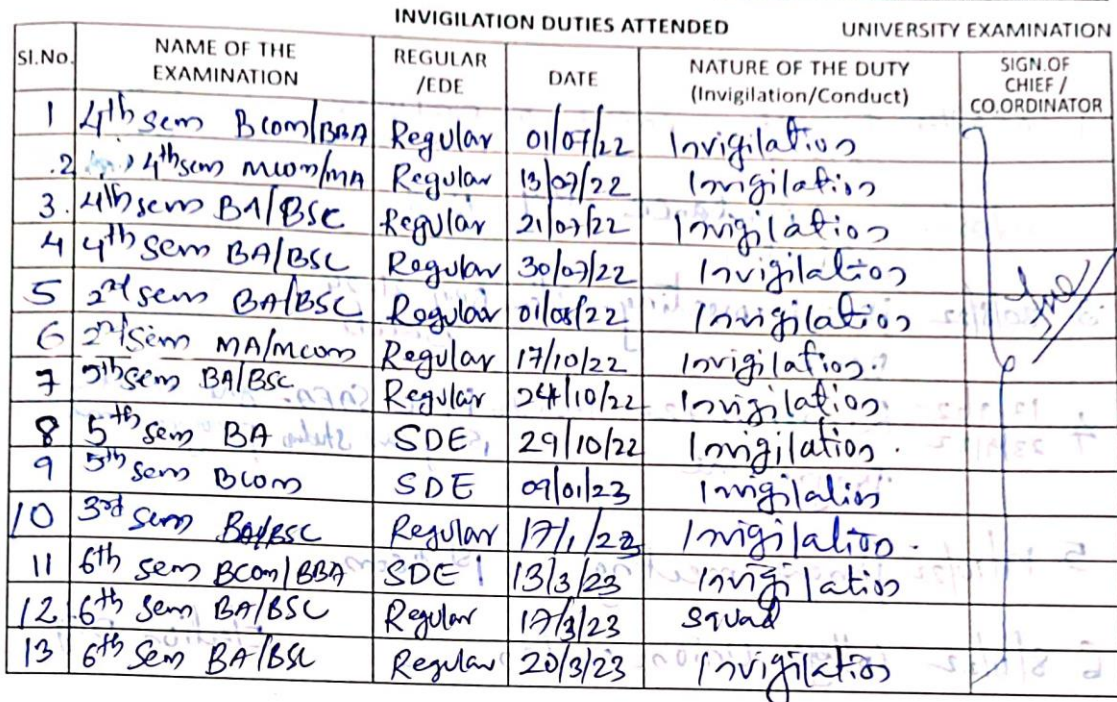 INVIGILATION DUTIES ATTENDED UNIVERSITY EXAMINATION
Sl.No. NAME OF THE EXAMINATION REGULAR /EDE DATE NATURE OF THE DUTY (Invigilation/Conduct) SIGN.OF CHIEF / CO.ORDINATOR
1 4th sem Bcom/BBA Regular 01/07/22 Invigilation
2 4th sem Mcom/MA Regular 13/07/22 Invigilation
3. 4th sem BA/BSC Regular 21/07/22 Invigilation
4 4th sem BA/BSC Regular 30/07/22 Invigilation
5 2nd sem BA/BSC Regular 01/08/22 Invigilation
6 2nd sem MA/Mcom Regular 17/10/22 Invigilation.
7 5th sem BA/BSC Regular 24/10/22 Invigilation
8 5th sem BA SDE 29/10/22 Invigilation.
9 5th sem Bcom SDE 09/01/23 Invigilation
10 3rd sem BA/BSC Regular 17/1/23 Invigilation.
11 6th sem BCom/BBA SDE 13/3/23 Invigilation
12 6th sem BA/BSC Regular 17/3/23 Squad
13 6th Sem BA/BSC Regular 20/3/23 Invigilation